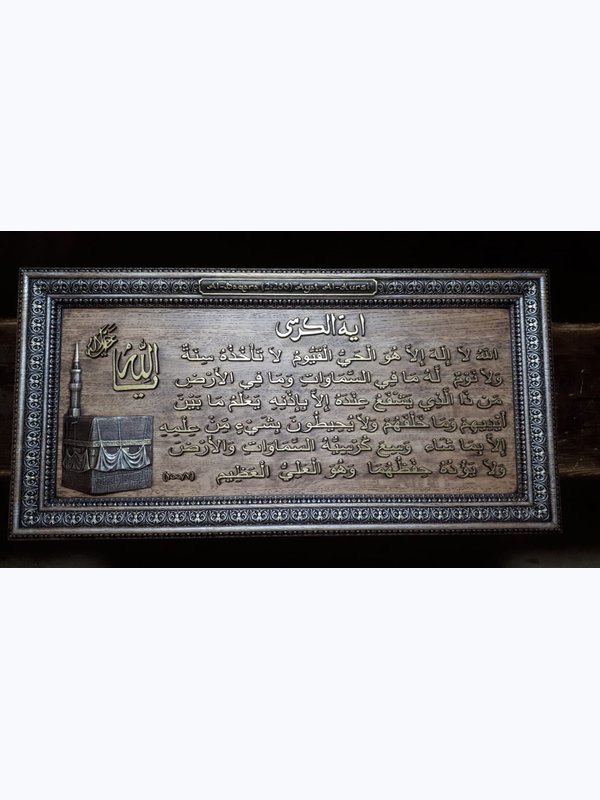 Al-Baqara (2/255) Ayat Al-Kursi
اية الكرسى
الله لا إله إلا هو الحي القيوم لا تأخذه سنة
ولا نوم له ما في السماوات وما في الأرض
من ذا الذي يشفع عنده إلا بإذنه يعلم ما بين
أيديهم وما خلفهم ولا يحيطون بشيء من علمه
إلا بما شاء وسع كرسيه السماوات والأرض
ولا يؤده حفظهما وهو العلي العظيم
يا الله